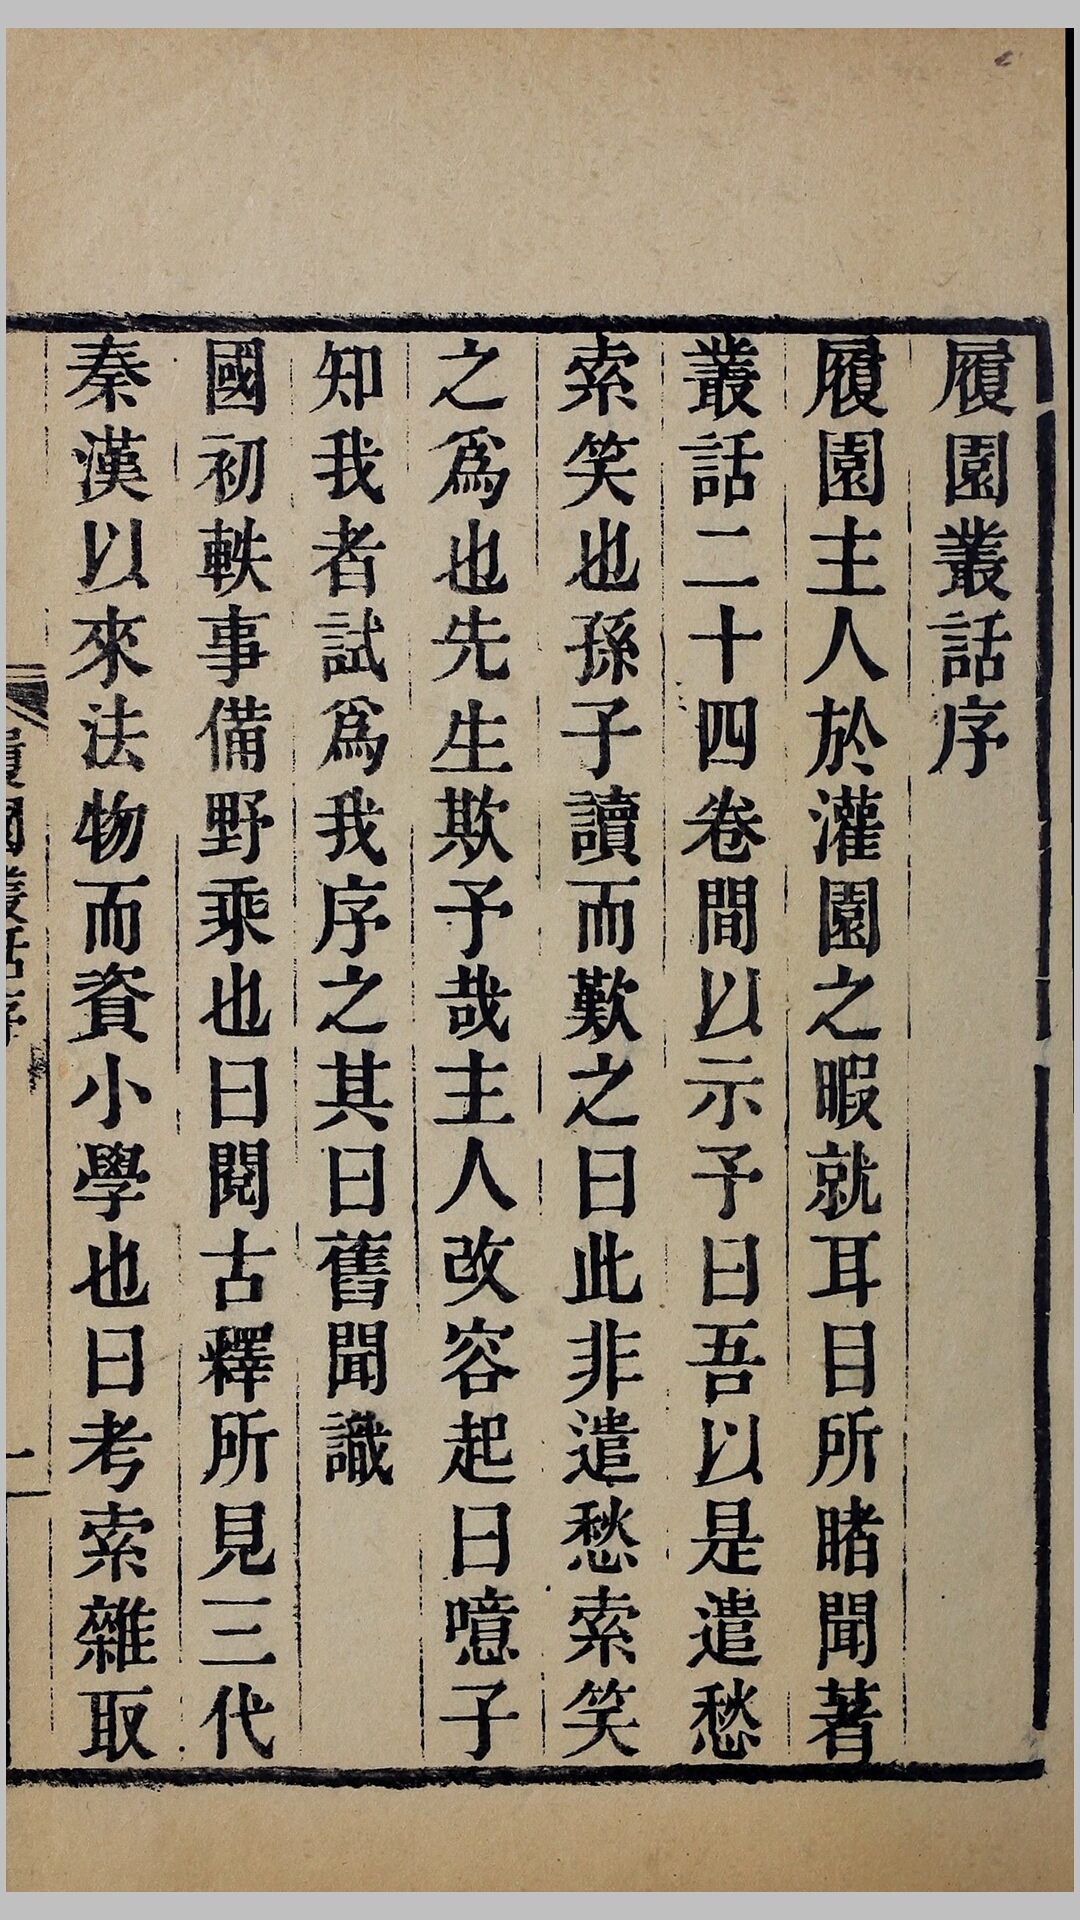 履園叢話序
履園主人於灌園之暇就耳目所睹聞著
叢話二十四卷間以示予曰吾以是遣愁
索笑也孫子讀而歎之曰此非遣愁索笑
之爲也先生欺予哉主人改容起曰噫子
知我者試爲我序之其曰舊聞識
國初軼事備野乘也曰閱古釋所見三代
秦漢以來法物而資小學也曰考索雜取
履園叢話序
一